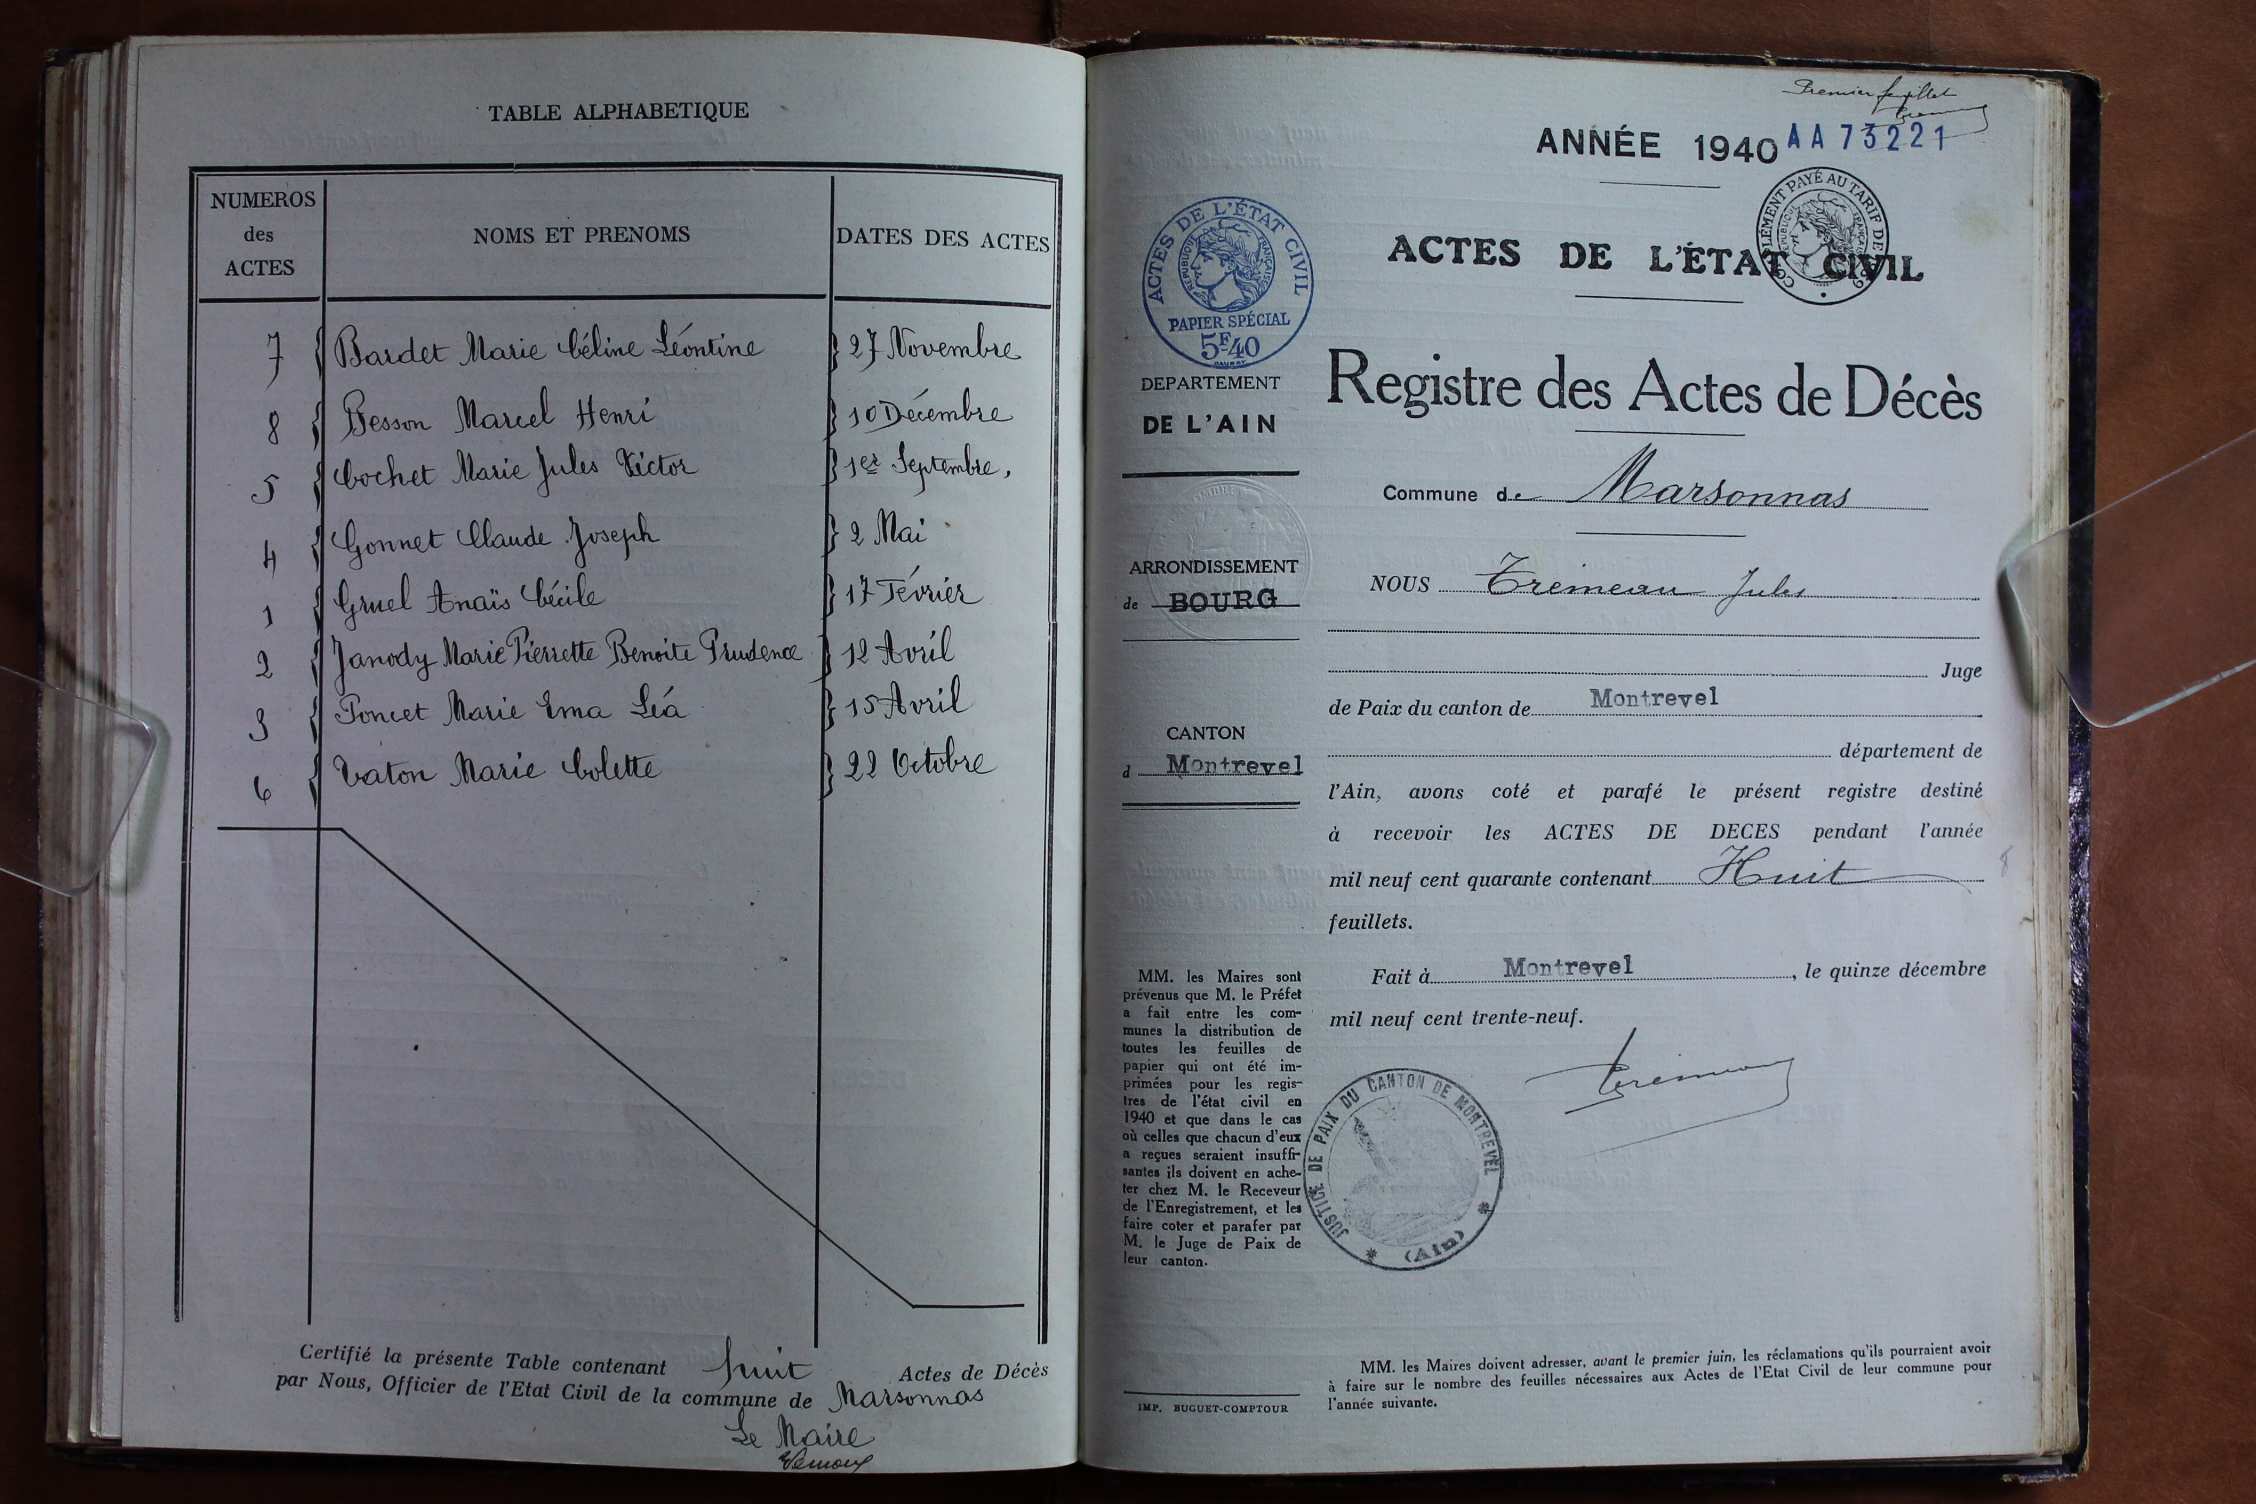 TABLE ALPHABETIQUE
NUMEROS
des
ACTES
NOMS ET PRENOMS
DATES DES ACTES
7 Bardet Marie Céline Léontine 27 Novembre
8 Besson Marcel Henri 10 Décembre
5 Cochet Marie Jules Victor 1er Septembre,
4 Gonnet Claude Joseph 2 Mai
1 Gruel Anaïs Cécile 17 Février
2 Janody Marie Pierrette Benoite Prudence 12 Avril
3 Poncet Marie Ema Léa 15 Avril
6 Vaton Marie Colette 22 Octobre
Certifié la présente Table contenant huit Actes de Décès
par Nous, Officier de l'Etat Civil de la commune de Marsonnas
Le Maire
Premier feuillet
ANNÉE 1940
AA 73221
ACTES DE L'ÉTAT CIVIL
PAPIER SPÉCIAL
5F40
COMPLÉMENT PAYÉ AU TARIF DE 1939
RÉPUBLIQUE FRANÇAISE
ACTES DE L'ÉTAT CIVIL
Registre des Actes de Décès
DEPARTEMENT
DE L'AIN
Commune de Marsonnas
ARRONDISSEMENT
de BOURG
CANTON
d Montrevel
NOUS Trémeau Jules
Juge
de Paix du canton de Montrevel
département de
l'Ain, avons coté et parafé le présent registre destiné
à recevoir les ACTES DE DECES pendant l'année
mil neuf cent quarante contenant Huit
8
feuillets.
Fait à Montrevel, le quinze décembre
mil neuf cent trente-neuf.
Trémeau
JUSTICE DE PAIX DU CANTON DE MONTREVEL
* (Ain) *
MM. les Maires sont
prévenus que M. le Préfet
a fait entre les com-
munes la distribution de
toutes les feuilles de
papier qui ont été im-
primées pour les regis-
tres de l'état civil en
1940 et que dans le cas
où celles que chacun d'eux
a reçues seraient insuffi-
santes ils doivent en ache-
ter chez M. le Receveur
de l'Enregistrement, et les
faire coter et parafer par
M. le Juge de Paix de
leur canton.
IMP. BUGUET-COMPTOUR
MM. les Maires doivent adresser, avant le premier juin, les réclamations qu'ils pourraient avoir
à faire sur le nombre des feuilles nécessaires aux Actes de l'Etat Civil de leur commune pour
l'année suivante.